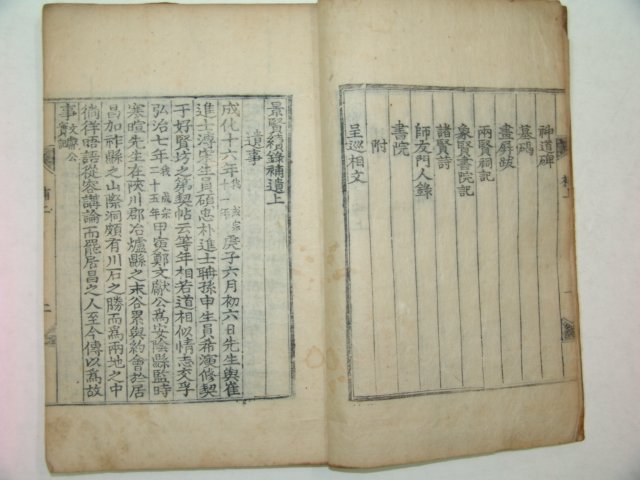 神道碑
墓碣
畫屛跋
兩賢祠記
象賢書院記
諸賢詩
師友門人錄
書院
附
呈巡相文
補上
一
景賢續錄補遺上
遺事
成化十六年我成宗十一年庚子六月初六日先生與崔
進士溥宋生員碩忠朴進士聃孫申生員希演修契
于好賢坊之第契帖云等年相若道相似情志交孚
弘治七年我成宗二十五年甲寅鄭文獻公爲安陰縣監時
寒暄先生在陜川郡冶爐縣之末谷累與約會於居
昌加祚縣之山際洞頗有川石之勝而爲兩地之中
徜徉晤語從容講論而罷居昌之人至今傳以爲故
事文獻公實記
二